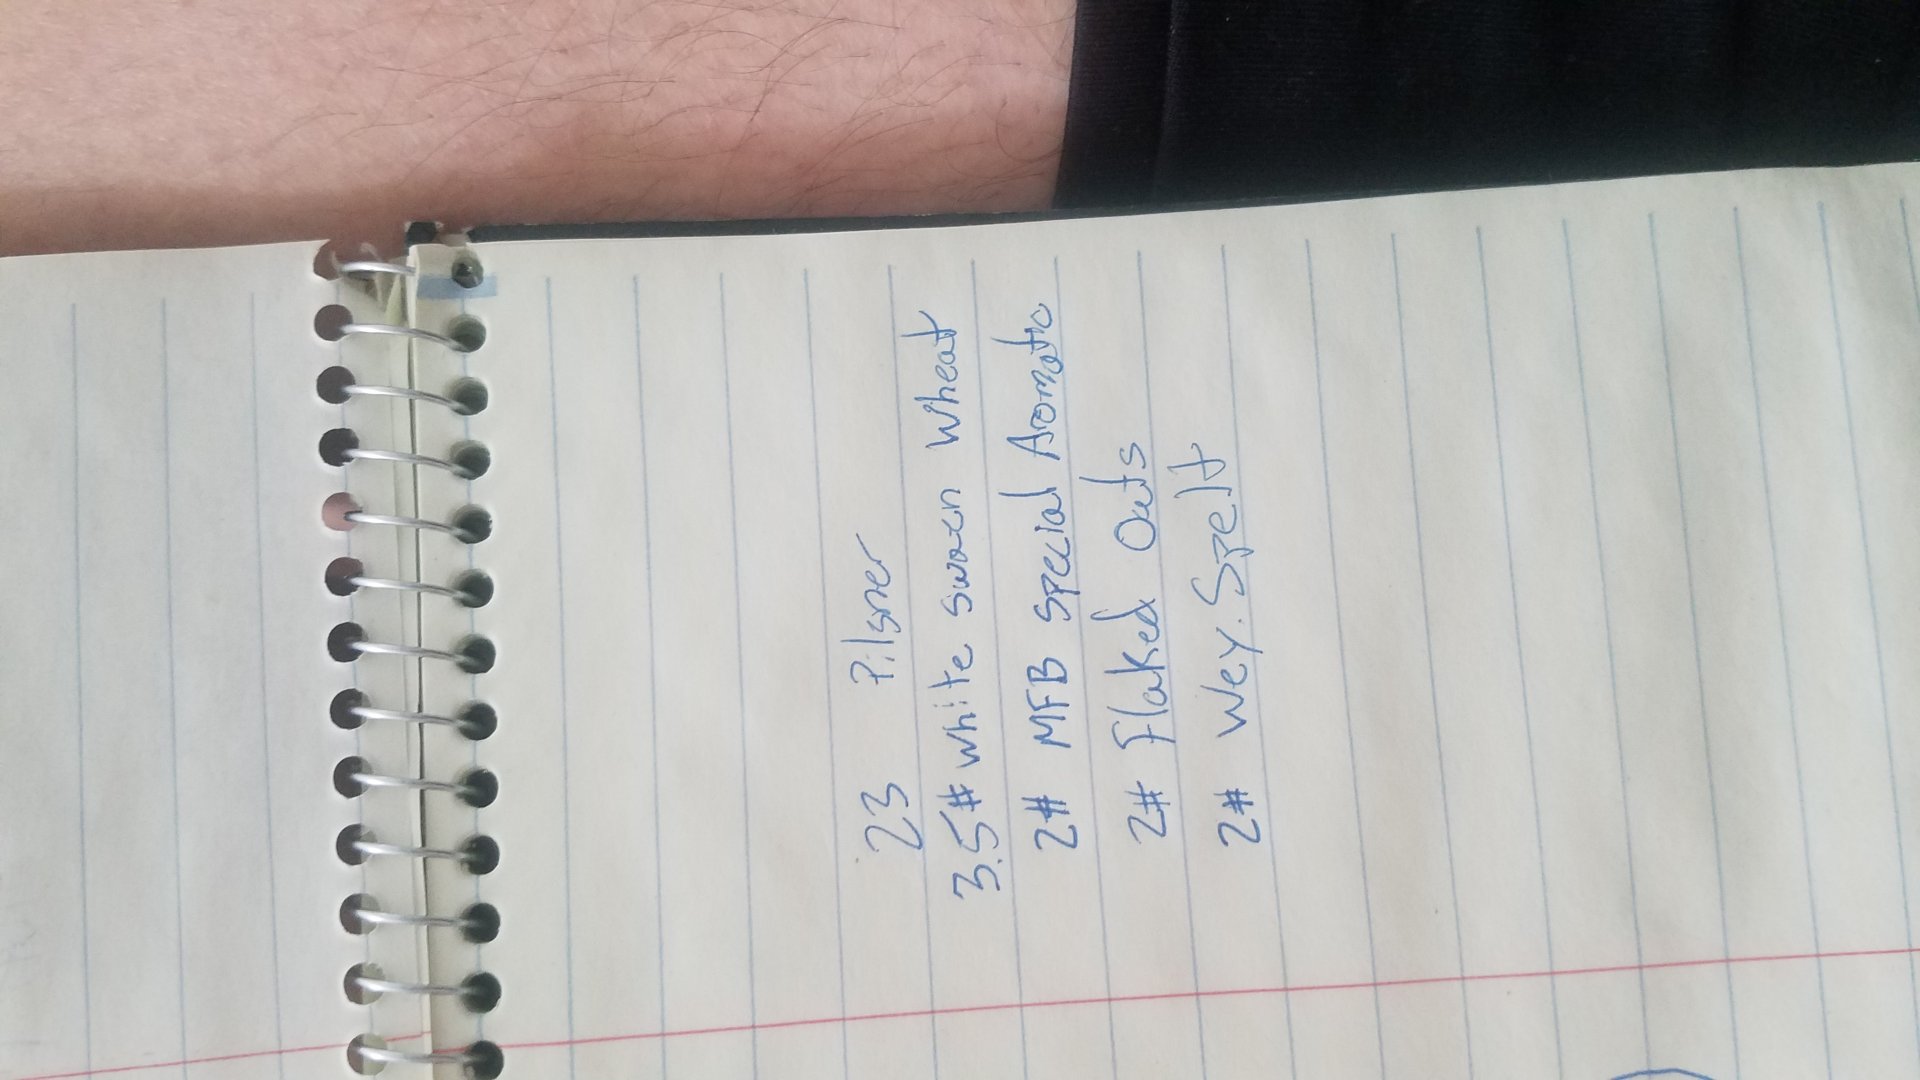 23 Pilsner
3.5# white swaen wheat
2# MFB Special Aromatic
2# Flaked Oats
2# Wey. Spelt